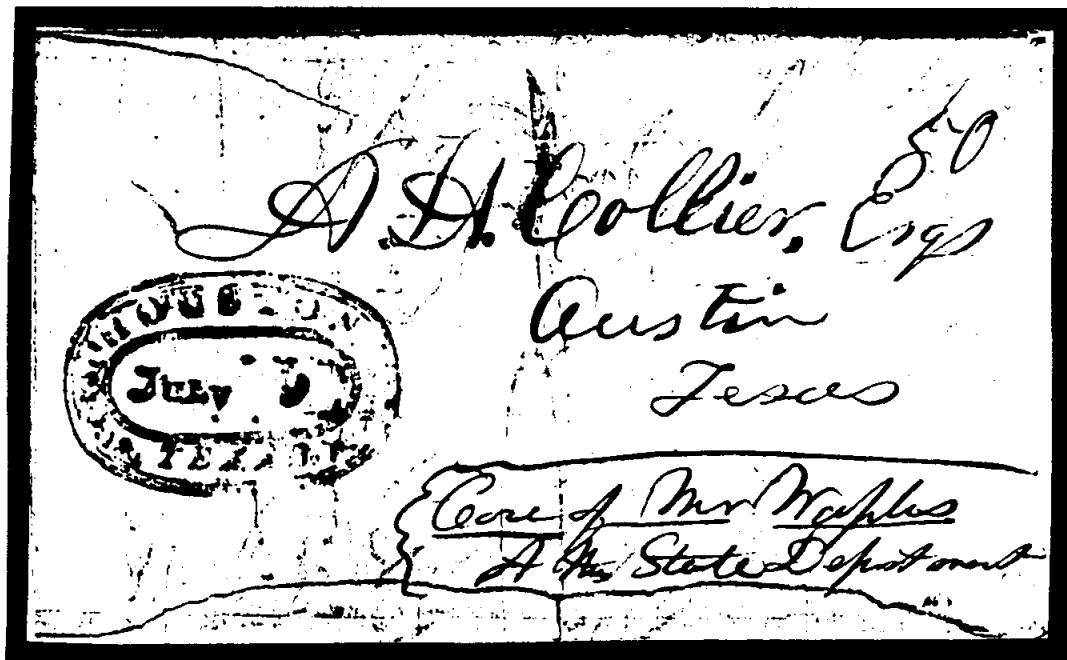 50
A. H. Collier, Esqr
Austin
Texas
HOUSTON
JULY
TEXAS
Care of Mr Waples
State Department